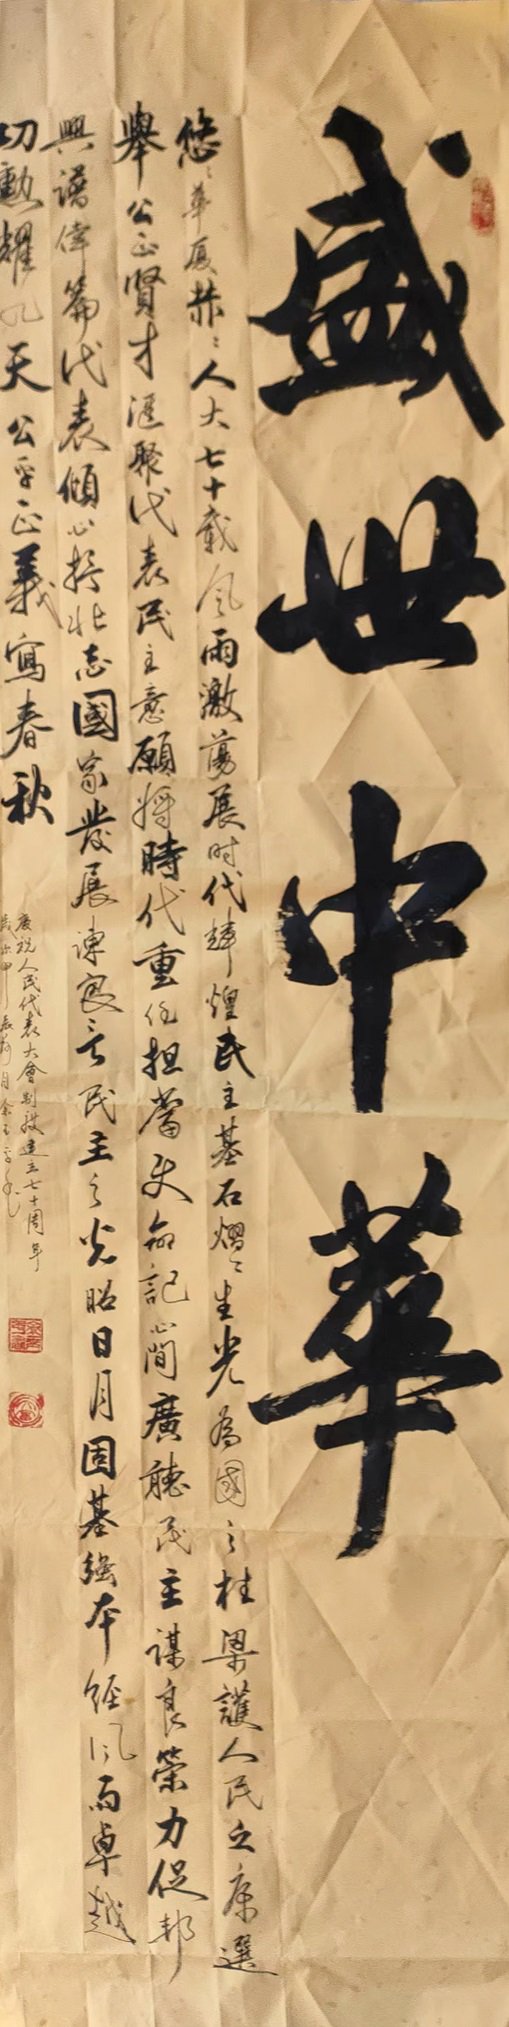 盛世中華
悠々華厦赫々人大七十載風雨激蕩展时代輝煌民主基石熠々生光為國之柱梁護人民之康選
舉公正賢才滙聚代表民主意願將時代重任担當使命記心間廣聽民主謀良策力促邦
興譜偉篇代表傾心抒壯志國家發展諫良言民主之光昭日月固基強本經風雨卓越
功勳耀九天公平正義寫春秋
慶祝人民代表大會制度建立七十周年
歲次甲辰